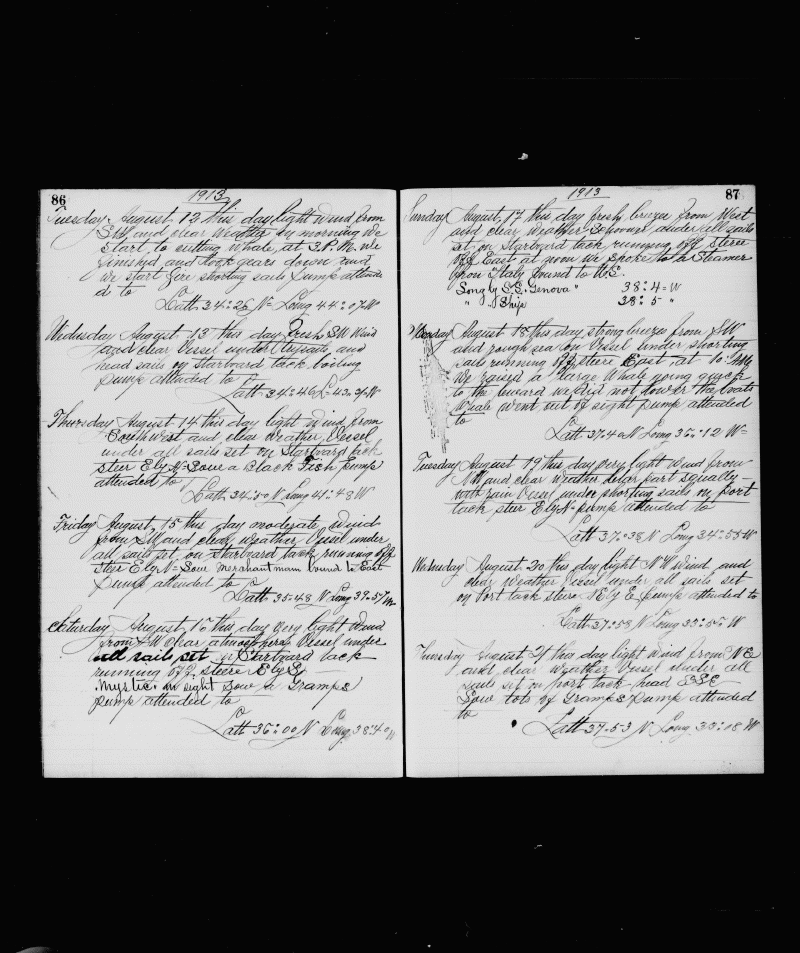 86
1913
Tuesday August 12 this day light wind from
SW and clear weather by morning we
start to cutting whale, at 3.P.M. we
finished and took gears down and
we start fire shorting sails pump attende
d to
Latt 34=26 N= Long 44=07W
Wednesday August 13 this day fresh SW wind
and clear Vessel under topsails, and
head sails on Starboard tack boiling
pump attended to
Latt 34=46 L=43=21W
Thursday August 14 this day light wind from
Southwest and clear weather, Vessel
under all sails set on Starboard tack
steer Ely N= Saw a Black Fish pump
attended to
Latt 34=50 N Long 41=48W
Friday August, 15 this day moderate wind
from SW and clear, weather, Vessel under
all sails set, on Starboard tack running off
steer Ely N= Saw Merchantmann bound to East
pump attended to
Latt 35=48 N Long 39=57W
Saturday August, 16 this day very light wind
from SW clear atmosphere Vessel under
all sail set on Starboard tack
running off steere Ely
Mystic in sight Saw Gramps
pump attended to
Latt 36=00 N Long 38=40W
87
1913
Sunday August, 17 this day fresh breeze from West
and clear weather Schooner under all sails
set on Starboard tack running off steere
East at noon we spoke to a Steamer
from Italy bound to U.S.
Long by S.S. Genova " 38=4=W
" " Ship 38=5 "
Monday August 18 this day, strong breeze from SW
and rough sea on Vessel under shorting
sails running off steere East at 10=AM
we raised a large Whale going quick
to the leward we did not lower the boats
Whale went out of sight pump attended
to
Latt 37=40 N Long 36=12 W=
Tuesday August 19 this day very light wind from
NW and clear weather delar part squally
with rain Vessel under shorting sails on port
tack steer Ely N= pump attended to
Latt 37=38 N Long 34=55W
Wednesday August 20 this day light NW wind and
clear weather Vessel under all sails set
on Port tack steere pump attended to
Latt 37=58 N Long 33=57 W
Thursday August 21 this day light wind from NE
and clear weather Vessel under all
sails set on port tack head SSE
Saw lots of Gramps pump attended
to
Latt 37=53 N Long 33=08 W